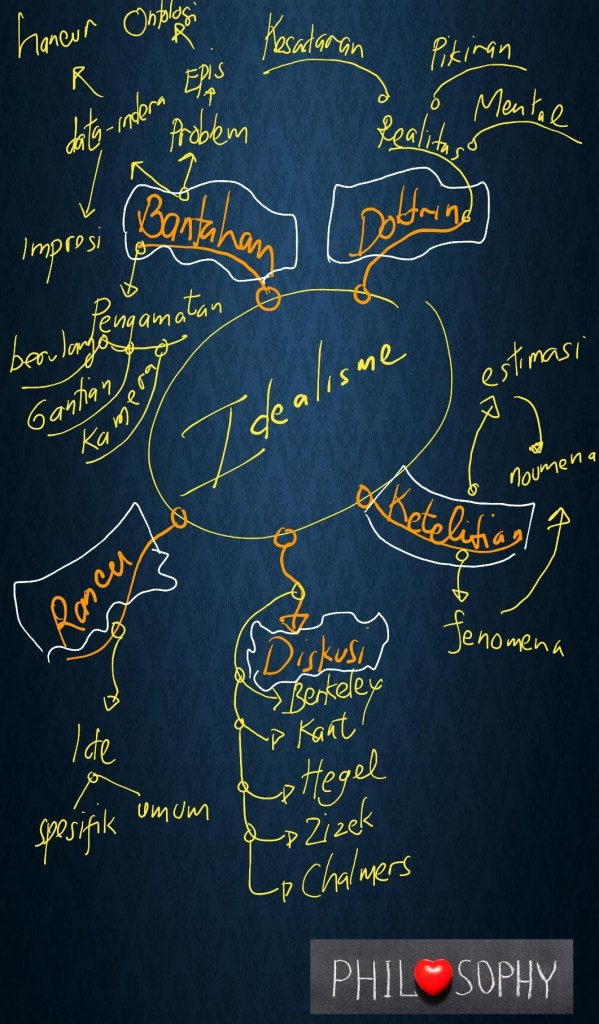 hancur
Ontologi
Kesadaran
Pikiran
Mental
Epis
data-indera
Problem
Realitas
Bantahan
Doktrin
Impresi
Pengamatan
berulang
Gantian
Kamera
Idealisme
estimasi
noumena
Ketelitian
fenomena
Rancu
Ide
spesifik
umum
Diskusi
Berkeley
Kant
Hegel
Zizek
Chalmers
PHIL❤SOPHY